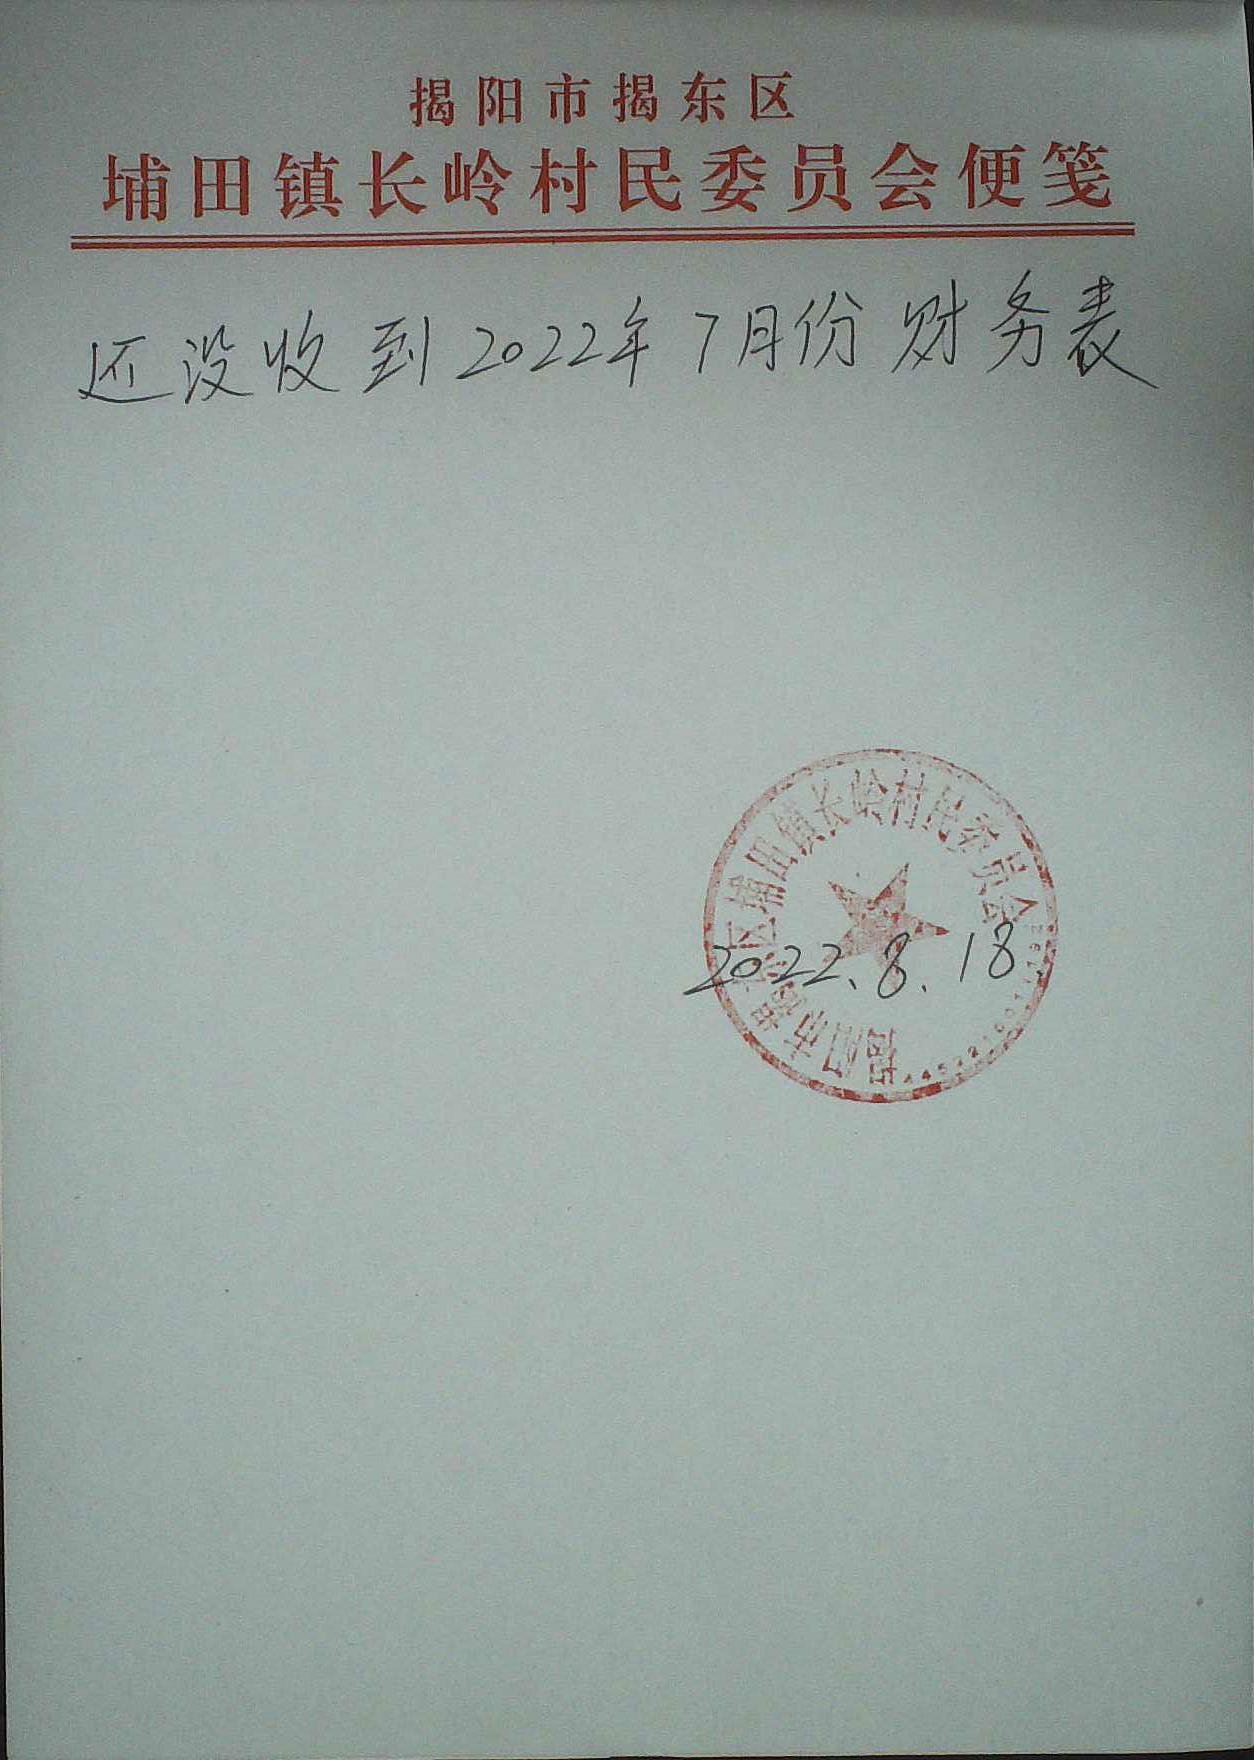 揭阳市揭东区
埔田镇长岭村民委员会便笺
还没收到2022年7月份财务表
揭阳市揭东区埔田镇长岭村民委员会
2022.8.18